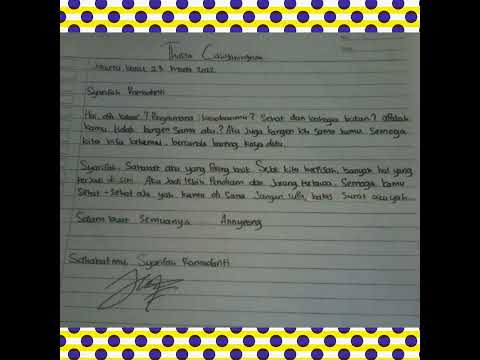 Thista
Jakarta barat 23 maret 2022
Syarifah Ramadanti
Hai, apa kabar? Bagaimana keadaanmu? Sehat dan bahagia bukan? apakah
kamu tidak kangen sama aku? Aku juga kangen kk sama kamu. Semoga
kita bisa ketemu, bercanda bareng kaya dulu.
Syarifah, Sahabat aku yang Paling baik. Sejak kita berpisah, banyak hal yang
terjadi di sini. Aku jadi lebih Pendiam dan Jarang tertawa. Semoga kamu
sehat-sehat aja yah kamu di sana. Jangan lupa, balas Surat aku yah...
Salam buat semuanya Annyeong
Sahabatmu Syarifah Ramadanti